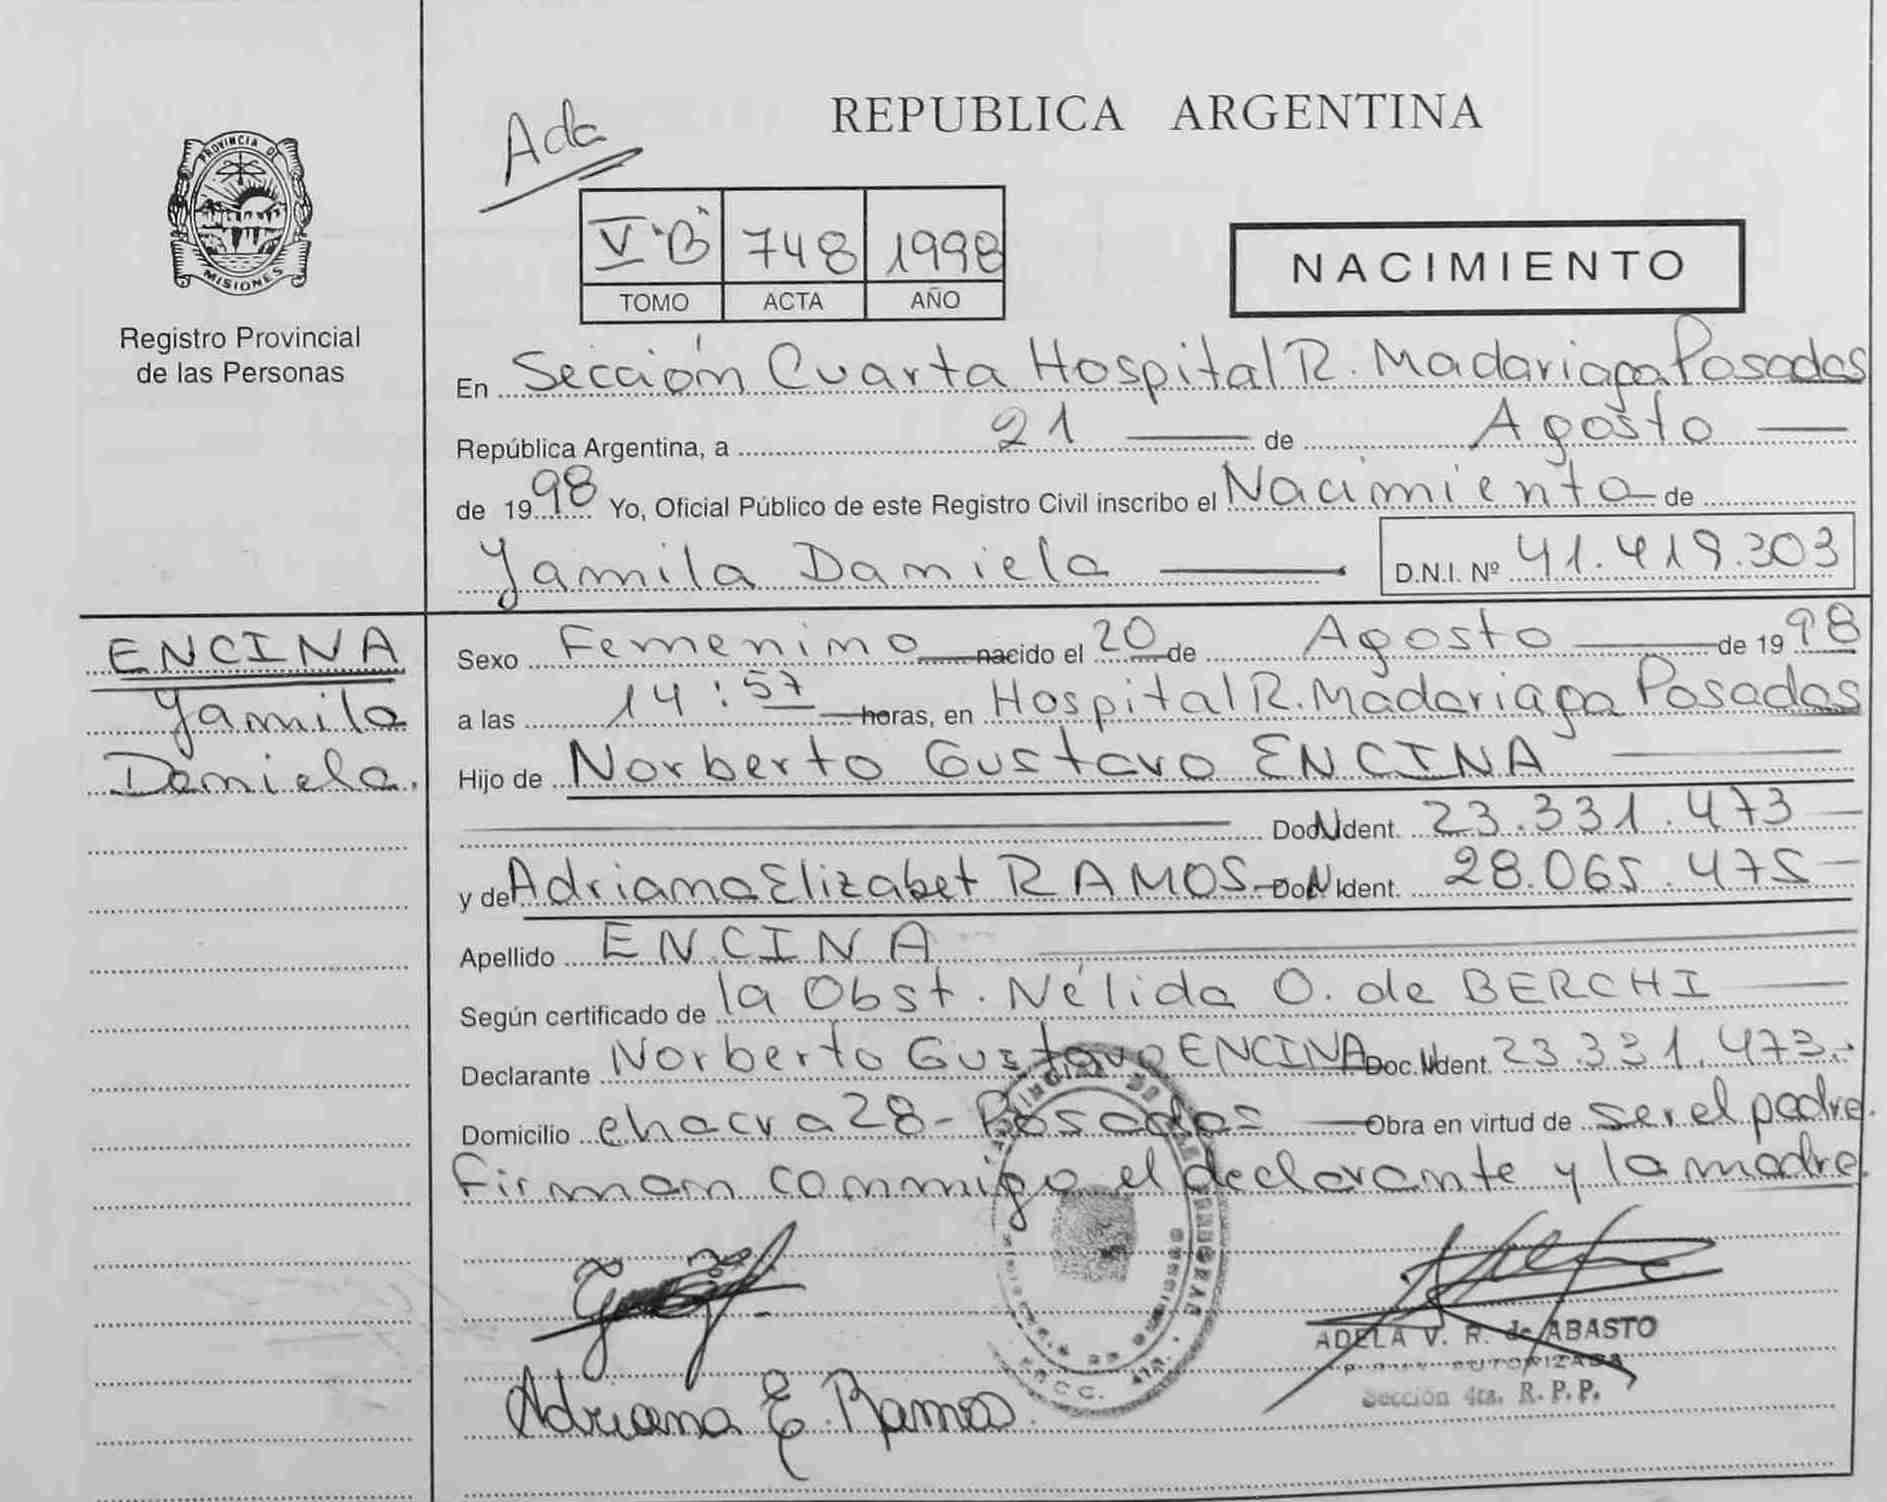 REPUBLICA ARGENTINA
Ada
PROVINCIA DE
MISIONES
Registro Provincial
de las Personas
V "B" 748 1998
TOMO ACTA AÑO
NACIMIENTO
En Sección Cuarta Hospital R. Madariaga Posadas
República Argentina, a 21 de Agosto
de 1998 Yo, Oficial Público de este Registro Civil inscribo el Nacimiento de
Yamila Daniela D.N.I. Nº 41.419.303
ENCINA
Yamila
Daniela.
Sexo Femenino nacido el 20 de Agosto de 1998
a las 14:57 horas, en Hospital R. Madariaga Posadas
Hijo de Norberto Gustavo ENCINA
Doc N Ident. 23.331.473
y de Adriana Elizabet RAMOS Doc N Ident. 28.065.475
Apellido ENCINA
Según certificado de la Obst. Nélida O. de BERCHI
Declarante Norberto Gustavo ENCINA Doc. N Ident. 23.331.473.-
Domicilio chacra 28 - Posadas Obra en virtud de ser el padre.
Firman conmigo el declarante y la madre.
ADELA V. R. de ABASTO
AUTORIZADA
Sección 4ta. R. P. P.
Adriana E. Ramos